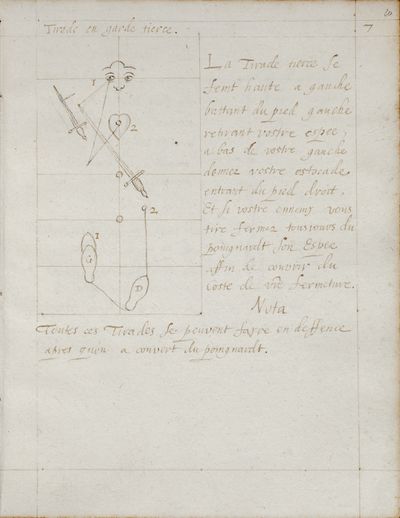 Tirade en garde tierce.
7
La Tirade tierce se
feint haute a gauche
battant du pied gauche
retirant vostre espee,
a bas de vostre gauche
donnez vostre estocade
entrant du pied droit.
Et si vostre ennemy vous
tire fermez tousiours du
poingnardt son Espee
affin de couvrir du
coste de vre fermeture.
Nota
Toutes ces Tirades se peuvent faire en deffence
apres qu'on a couvert du poingnardt.
1
2
2
1
G
D